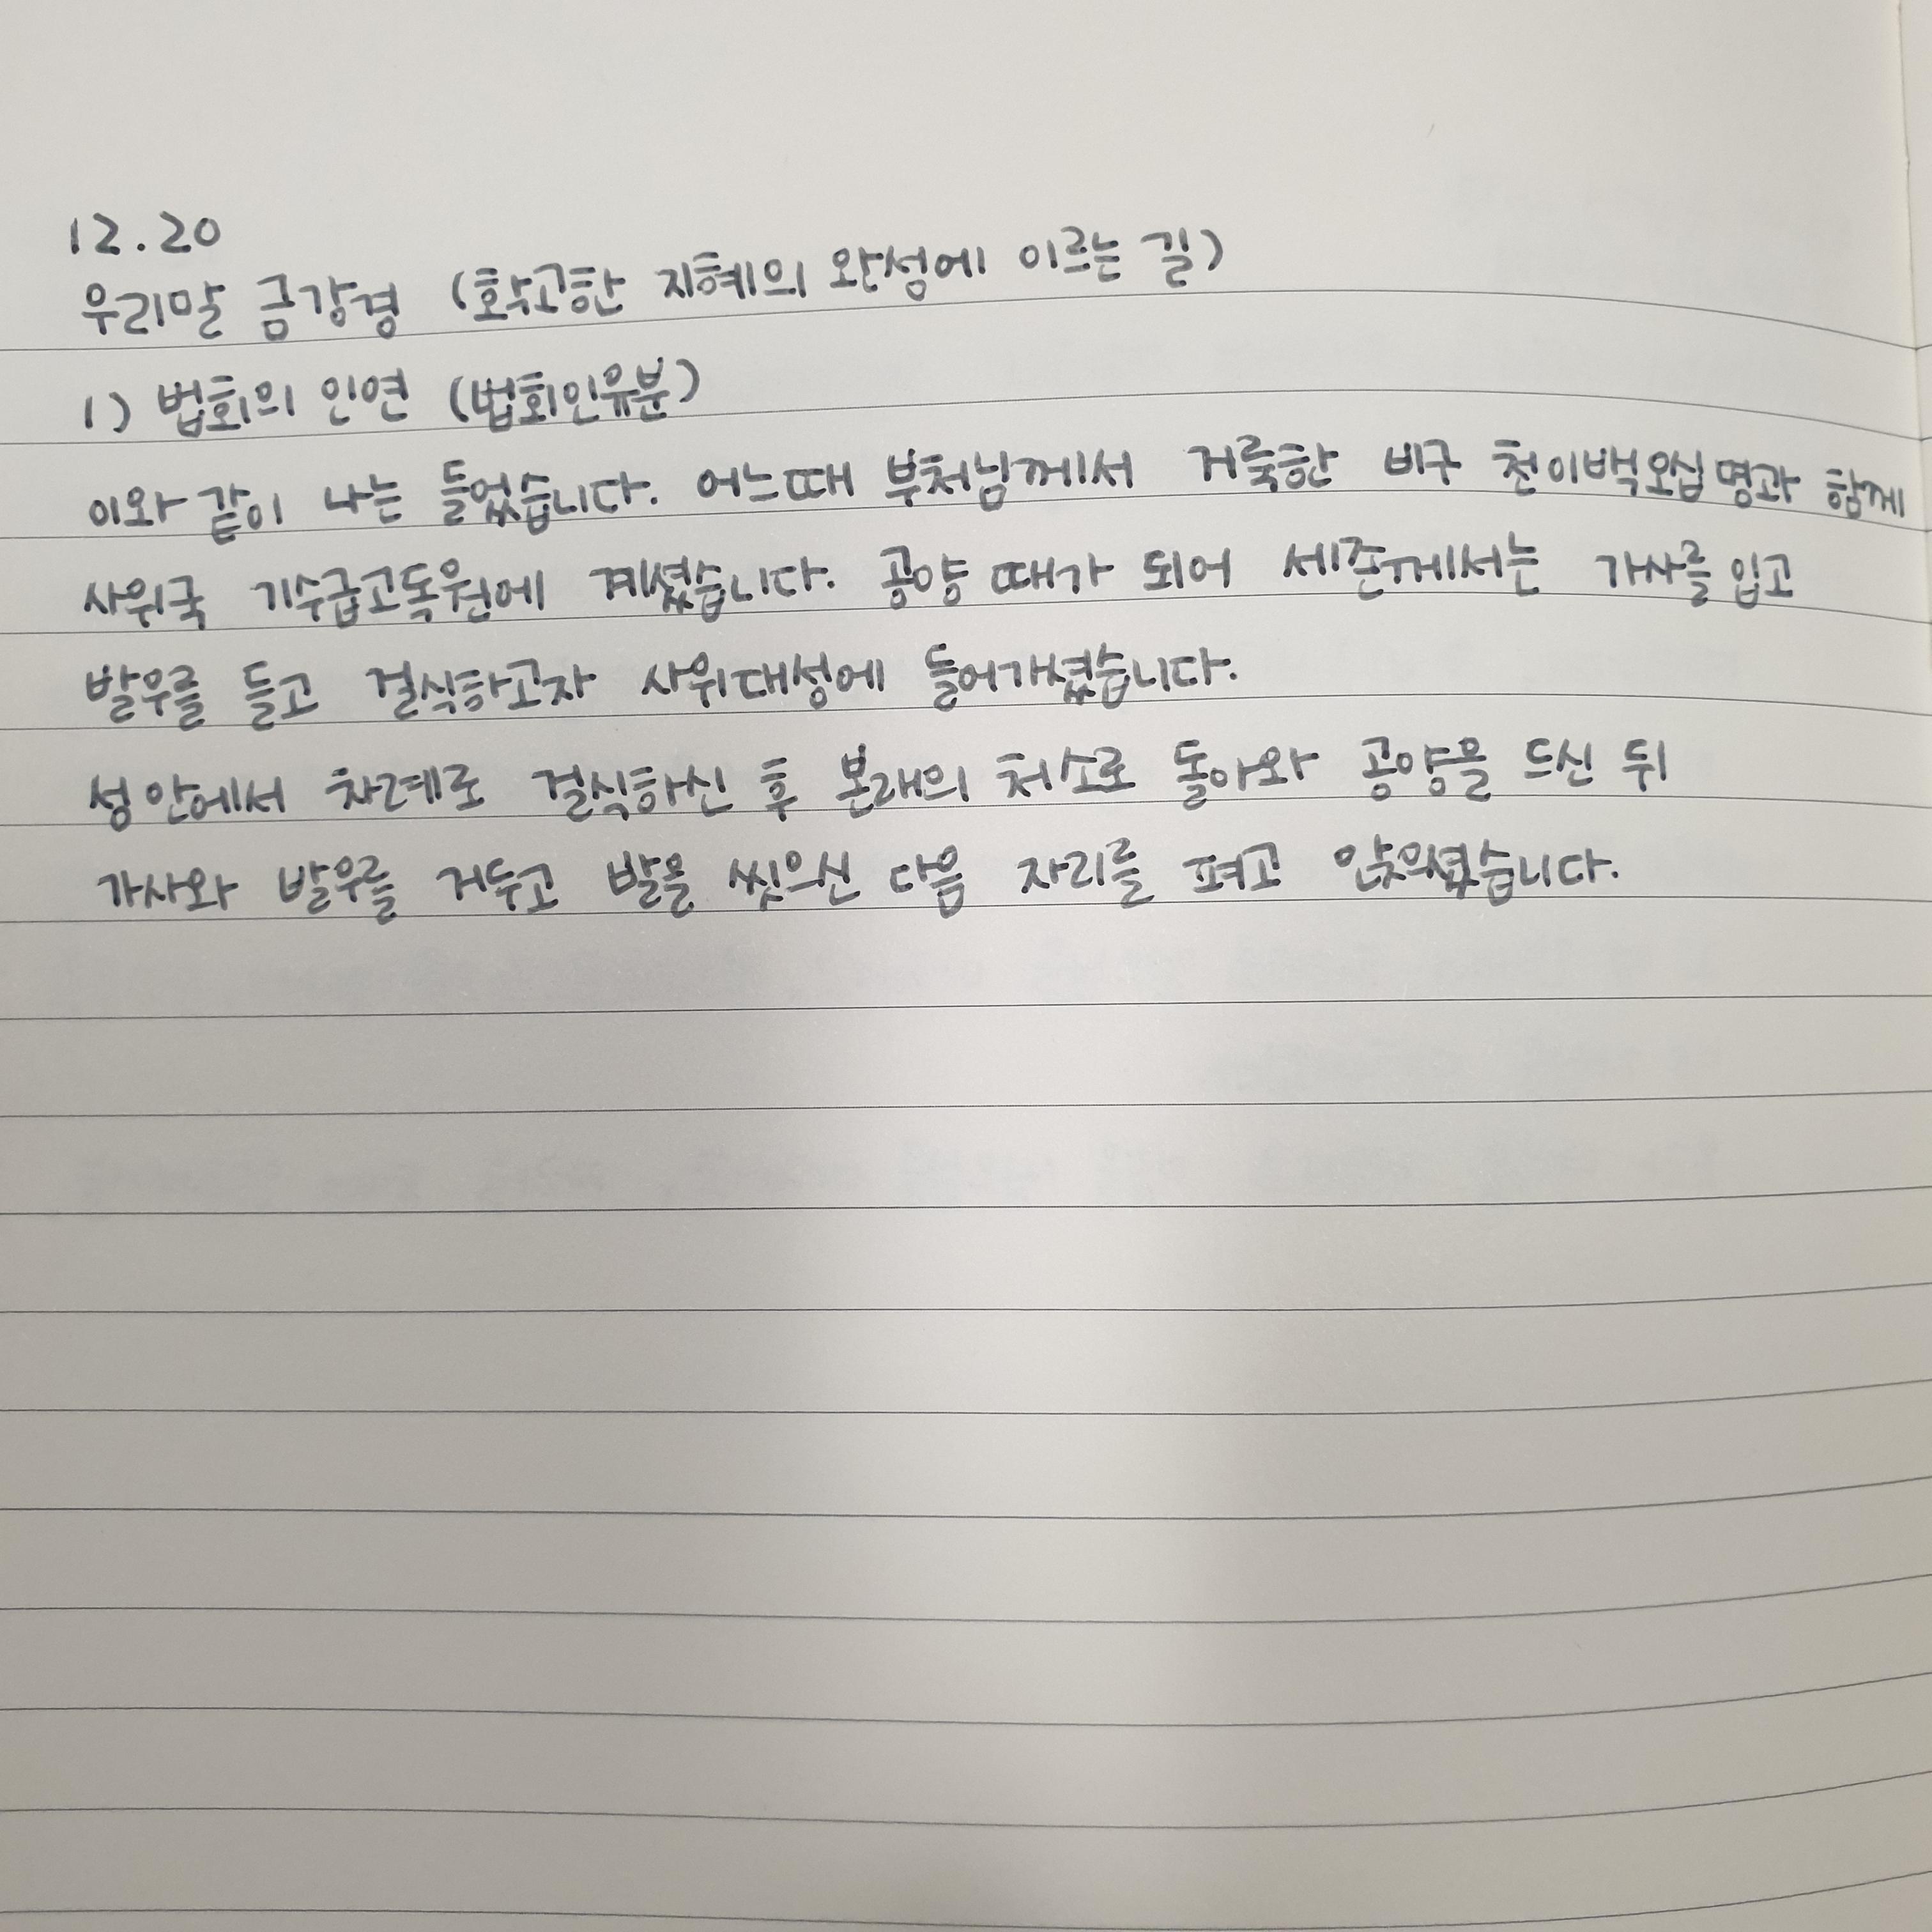 12.20
우리말 금강경 (확고한 지혜의 완성에 이르는 길)
1) 법회의 인연 (법회인유분)
이와 같이 나는 들었습니다. 어느때 부처님께서 거룩한 비구 천이백오십명과 함께
사위국 기수급고독원에 계셨습니다. 공양 때가 되어 세존께서는 가사를 입고
발우를 들고 걸식하고자 사위대성에 들어가셨습니다.
성 안에서 차례로 걸식하신 후 본래의 처소로 돌아와 공양을 드신 뒤
가사와 발우를 거두고 발을 씻으신 다음 자리를 펴고 앉으셨습니다.